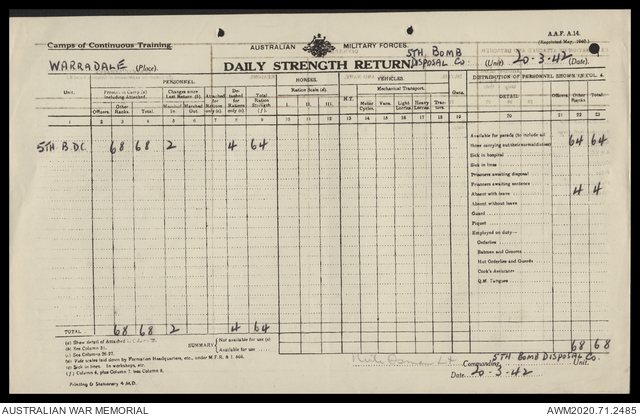 A.A.F. A.14.
Camps of Continuous Training.
AUSTRALIAN MILITARY FORCES.
WARRADALE (Place).
DAILY STRENGTH RETURN
5TH. BOMB DISPOSAL Co. (Unit) 20-3-42
PERSONNEL. HORSES. VEHICLES. DISTRIBUTION OF PERSONNEL SHOWN IN COL. 4.
Unit. Changes since Last Return (d). Ration Scale (d). Mechanical Transport. Guns. DETAIL.
Officers. Other Ranks. Total. Marched In Marched Out. Total Ration Strength (f) I. II. III. H.T. Motor Cycles. Vans. Light Lorries. Heavy Lorries. Trac-tors. Officers. Other Ranks. Total.
2 3 4 5 6 7 8 9 10 11 12 13 14 15 16 17 18 19 20 21 22 23
Available for parade (to include all
5TH. B.D.C. 68 68 2 4 64
those carrying out their normal duties) 64 64
Sick in hospital
Sick in lines
Prisoners awaiting disposal
Prisoners awaiting sentence
Absent with leave 4 4
Absent without leave
Guard
Piquet
Employed on duty—
Orderlies
Batmen and Grooms
Hut Orderlies and Guards
Cook's Assistants
Q.M. Fatigues
TOTAL 68 68 2 4 64
68 68
(a) Show detail of Attached
(b) See Column 21.
(c) See Columns 20-27.
SUMMARY Not available for use (e)
Available for use
(d) Vide scales laid down by Formation Headquarters, etc., under M.F.R. & I. 666.
(e) Sick in lines. In workshops, etc.
(f) Column 4, plus Column 7, less Column 8.
Lt
Commanding 5TH. BOMB DISPOSAL Co. Unit.
Date 20-3-42
Printing & Stationery 4 M.D.
AUSTRALIAN WAR MEMORIAL
AWM2020.71.2485